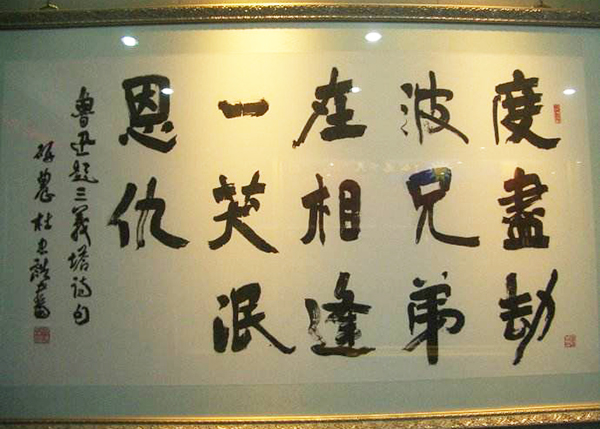 度盡劫
波兄弟
在相逢
一笑泯
恩仇
魯迅題三義塔詩句
研農杜忠誥書